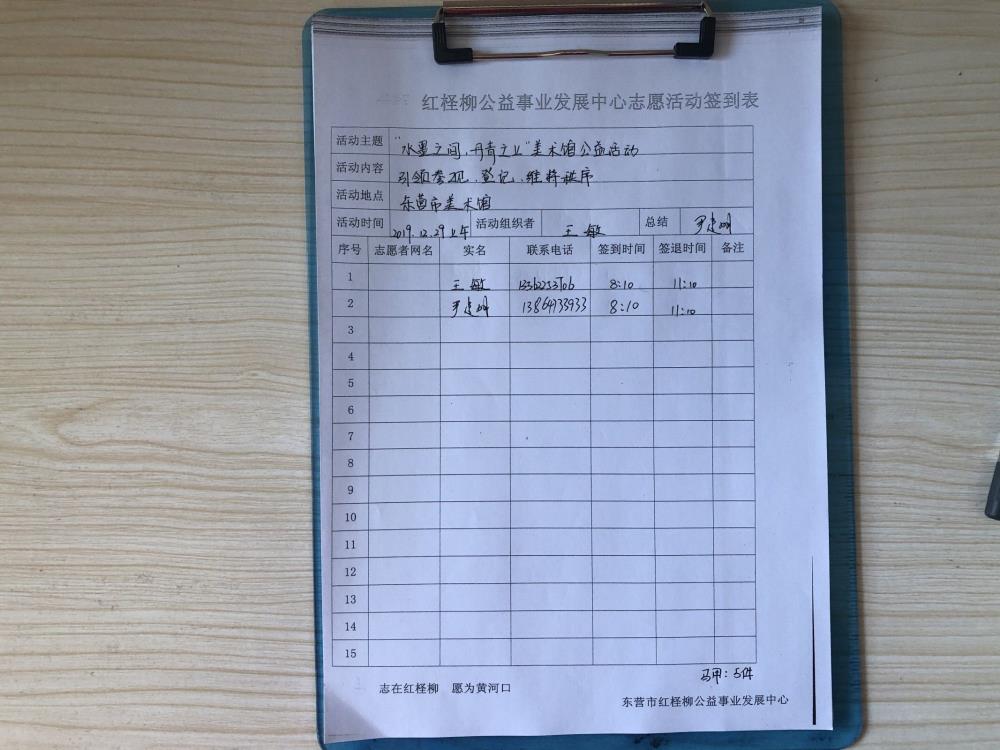 红柽柳公益事业发展中心志愿活动签到表
活动主题 "水墨之间,丹青之上"美术馆公益活动
活动内容 引领参观、登记、维持秩序
活动地点 东营市美术馆
活动时间 2019.12.29上午 活动组织者 王敏 总结
序号 志愿者网名 实名 联系电话 签到时间 签退时间 备注
1 王敏 8:10 11:10
2 13864733933 8:10 11:10
3
4
5
6
7
8
9
10
11
12
13
14
15
马甲：5件
志在红柽柳 愿为黄河口
东营市红柽柳公益事业发展中心